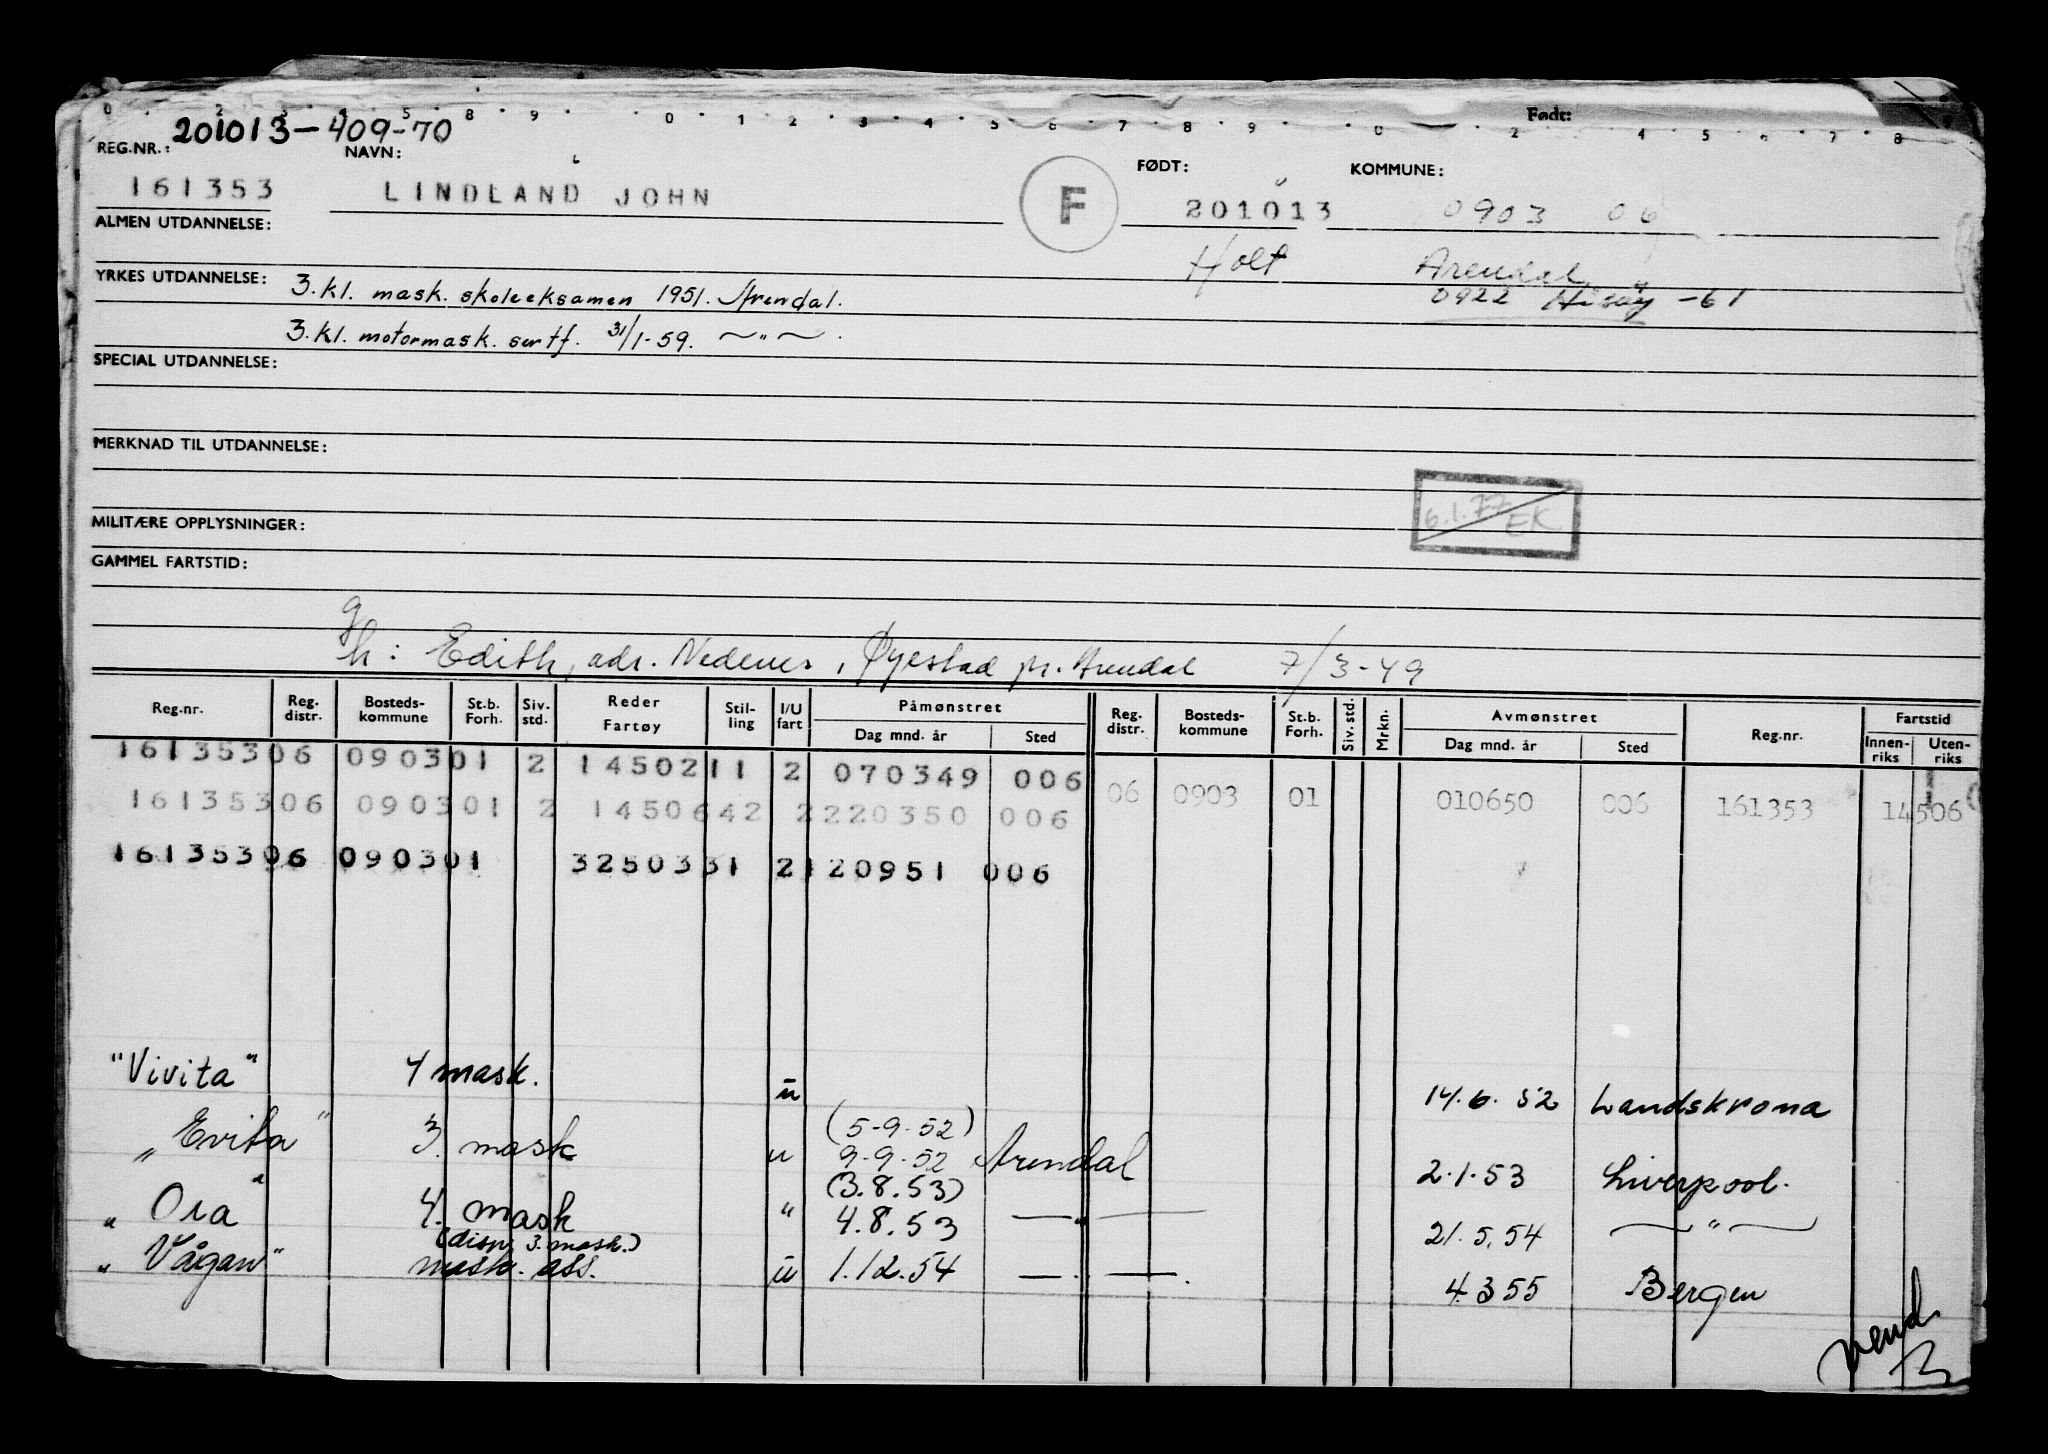 0 2 3 4 5 8 9 0 1 2 3 4 5 6 7 8 9 0 2 4 5 6 7 8
Født:
201013-409-70
REG.NR.: NAVN: FØDT: KOMMUNE:
161353 LINDLAND JOHN F 201013 0903 06
ALMEN UTDANNELSE:
Holt Arendal
YRKES UTDANNELSE: 3.kl. mask. skoleeksamen 1951. Arendal. 0922 Hisøy -61
3.kl. motormask. sertf. 31/1-59. —„—.
SPECIAL UTDANNELSE:
MERKNAD TIL UTDANNELSE:
6.1.77 EK
MILITÆRE OPPLYSNINGER:
GAMMEL FARTSTID:
g
h: Edith, adr. Nedenes, Øyestad pr. Arendal 7/3-49
Reg.nr. Reg. distr. Bosteds-kommune St.b. Forh. Siv. std. Reder Fartøy Stil-ling I/U fart Påmønstret Dag mnd. år Sted Reg. distr. Bosteds-kommune St.b. Forh. Siv. std. Mrkn. Avmønstret Dag mnd. år Sted Reg.nr. Fartstid Innen-riks Uten-riks
161353 06 0903 01 2 14502 11 2 070349 006
161353 06 0903 01 2 14506 42 2 220350 006 06 0903 01 010650 006 161353 14506
161353 06 0903 01 32503 31 2 120951 006
"Vivita" 4 mask. u 14.6.52 Landskrona
(5-9-52)
„Evita" 3. mask u 9-9-52 Arendal 2.1.53 Liverpool.
(3.8.53)
„Ora" 4. mask " 4.8.53 —„— 21.5.54 —"—
(disp. 3. mask.)
„Vågan" mask. ass. u 1.12.54 —„—. 4.3 55 Bergen
vend